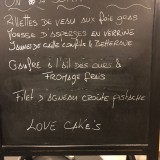 RILLETTES DE VEAU AUX FOIE GRAS
MOUSSE D'ASPERGES EN VERRINE
JAUNE DE CAILLE CONFIT & BETTERAVE
GAUFRE À L'AIL DES OURS &
FROMAGE FRAIS
FILET D'AGNEAU CROÛTE PISTACHE
LOVE CAKE'S